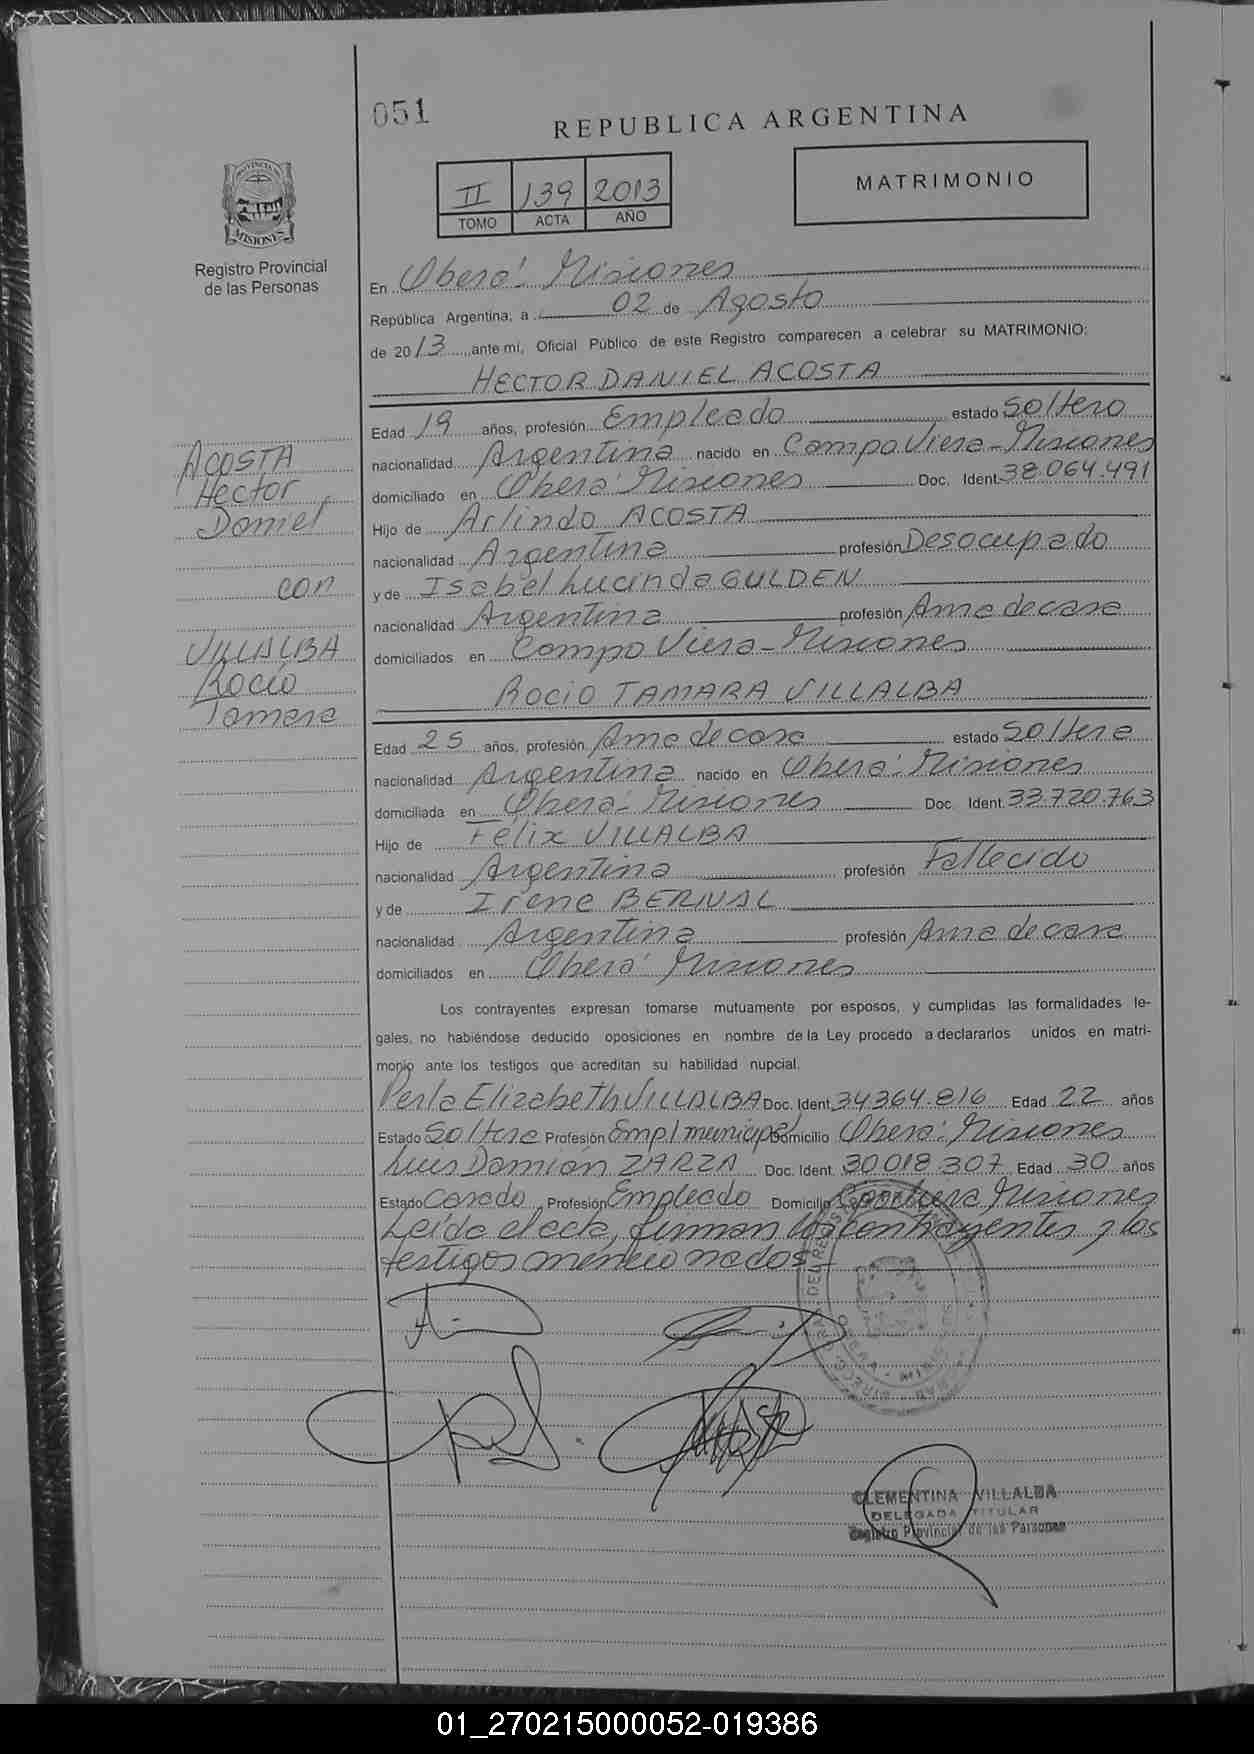 051
REPUBLICA ARGENTINA
II 139 2013
TOMO ACTA AÑO
MATRIMONIO
PROVINCIA
MISIONES
Registro Provincial
de las Personas
En Oberá: Misiones
República Argentina, a 02 de Agosto
de 2013 ante mí, Oficial Público de este Registro comparecen a celebrar su MATRIMONIO:
HECTOR DANIEL ACOSTA
Edad 19 años, profesión Empleado estado Soltero
nacionalidad Argentina nacido en Campo Viera-Misiones
domiciliado en Oberá Misiones Doc. Ident. 38.064.491
Hijo de Arlindo ACOSTA
nacionalidad Argentina profesión Desocupado
y de Isabel Lucinda GULDEN
nacionalidad Argentina profesión Ama de casa
domiciliados en Campo Viera-Misiones
ACOSTA
Hector
Daniel
con
VILLALBA
Rocío
Tamara
ROCIO TAMARA VILLALBA
Edad 25 años, profesión Ama de casa estado Soltera
nacionalidad Argentina nacido en Oberá: Misiones
domiciliada en Oberá- Misiones Doc. Ident. 33.720.763
Hijo de Félix VILLALBA
nacionalidad Argentina profesión Fallecido
y de Irene BERNAL
nacionalidad Argentina profesión Ama de casa
domiciliados en Oberá: Misiones
Los contrayentes expresan tomarse mutuamente por esposos, y cumplidas las formalidades le-
gales, no habiéndose deducido oposiciones en nombre de la Ley procedo a declararlos unidos en matri-
monio ante los testigos que acreditan su habilidad nupcial.
Perla Elizabeth VILLALBA Doc. Ident. 34.364.816 Edad 22 años
Estado Soltera Profesión Empl municipal Domicilio Oberá: Misiones
Luis Damián ZARZA Doc. Ident. 30.018.307 Edad 30 años
Estado Casado Profesión Empleado Domicilio Misiones
Leída el acta, firman los contrayentes y los
testigos mencionados-
CLEMENTINA VILLALBA
DELEGADA TITULAR
Registro Provincial de las Personas
01_270215000052-019386